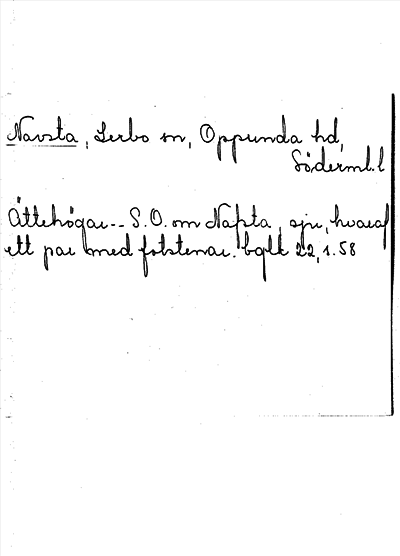 Navsta, Lerbo sn, Oppunda hd,
Söderml. l
Ättehögar-- S.O. om Nafsta, sju, hvaraf
ett par med fotstenar. bgbl 22, 1.58